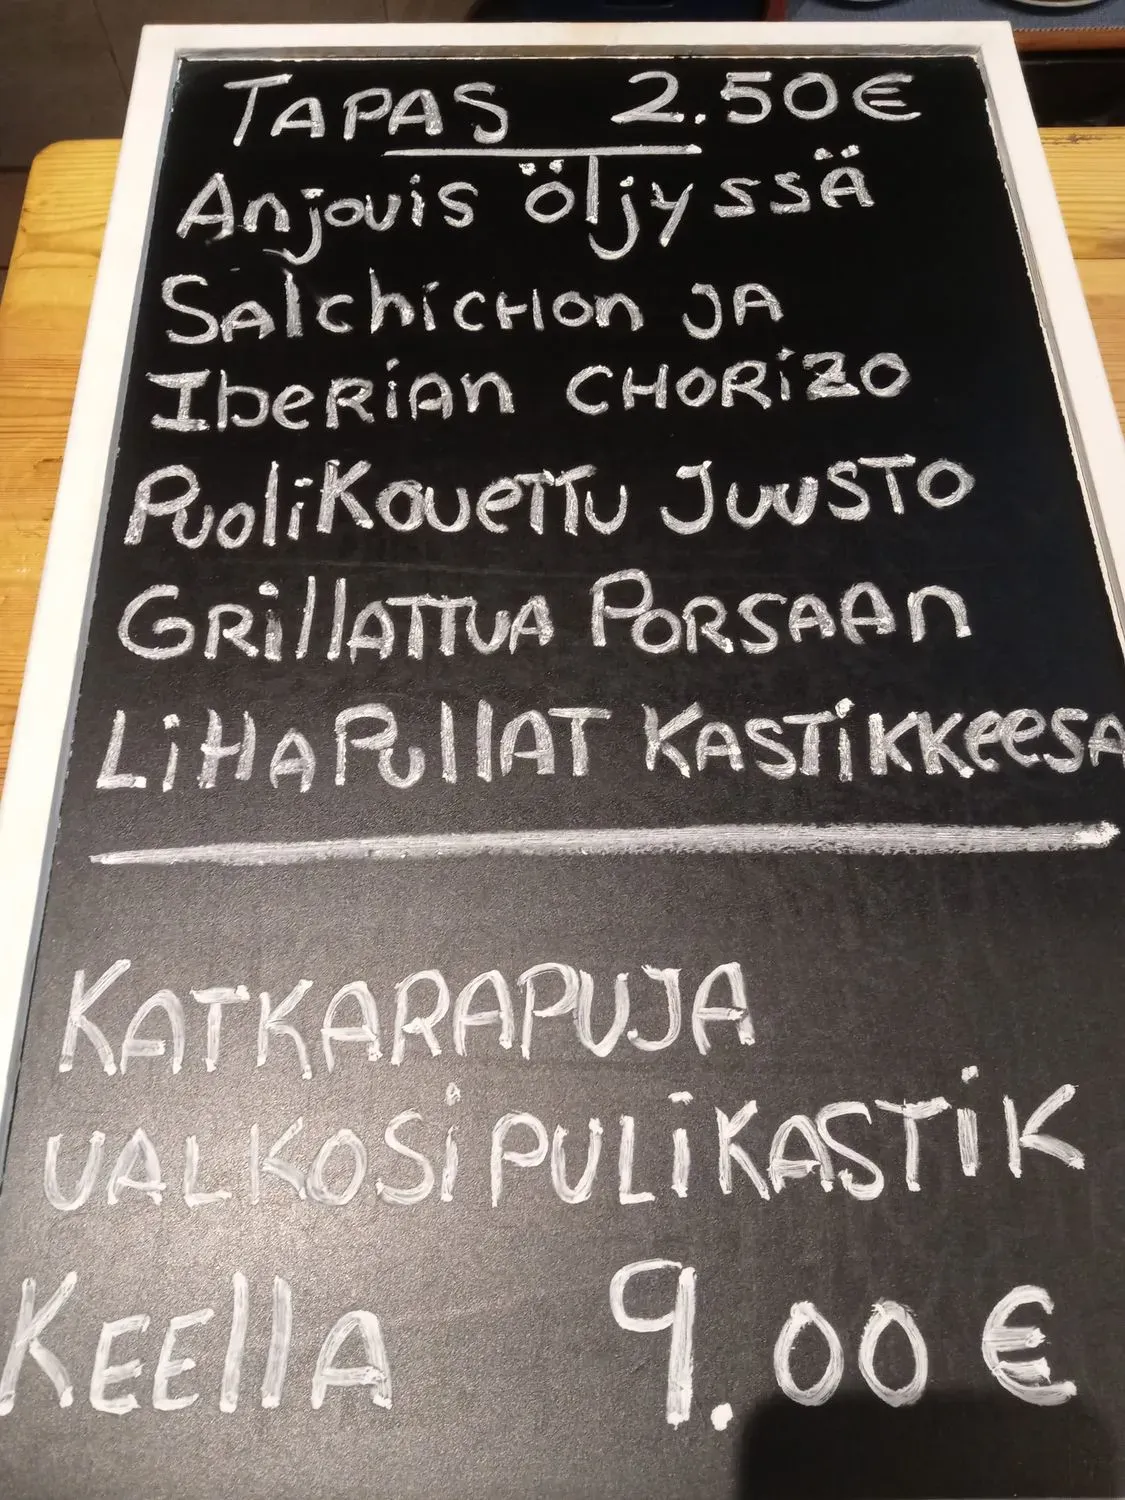 TAPAS 2.50€
Anjovis öljyssä
SALCHICHON JA
IBERIAN CHORIZO
PUOLIKOVETTU JUUSTO
GRILLATTUA PORSAAN
LIHAPULLAT KASTIKKEESA
KATKARAPUJA
VALKOSIPULIKASTIK
KEELLA 9.00€